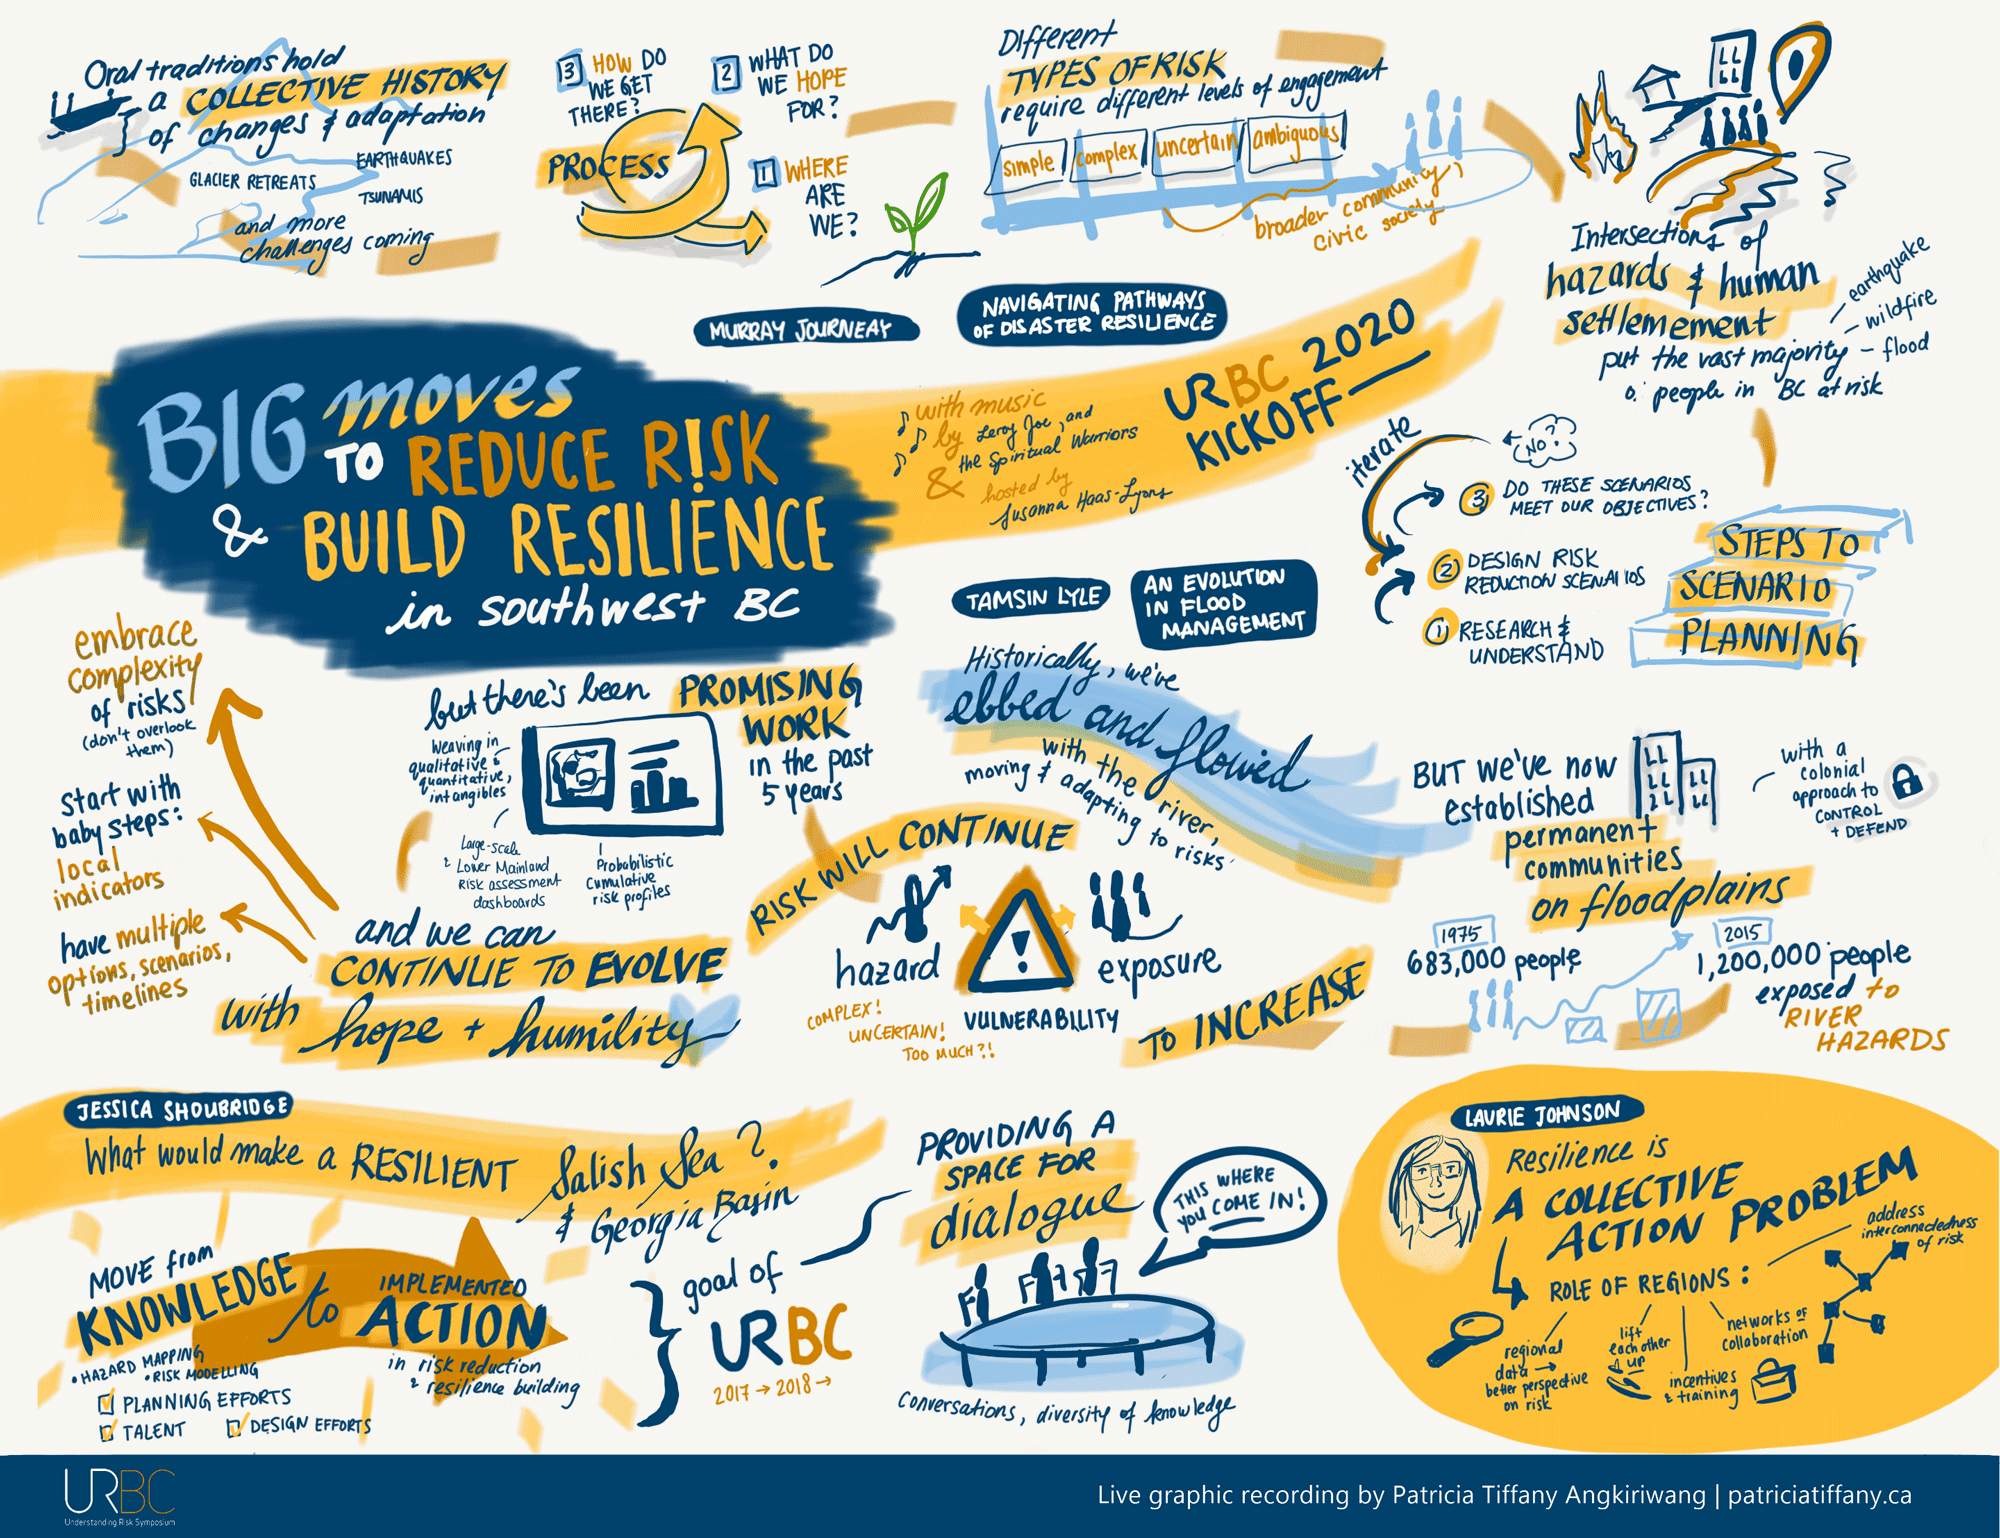 Oral traditions hold
a COLLECTIVE HISTORY
of changes & adaptation
EARTHQUAKES
GLACIER RETREATS
TSUNAMIS
and more
challenges coming
PROCESS
3 HOW DO
WE GET
THERE?
2 WHAT DO
WE HOPE
FOR?
1 WHERE
ARE
WE?
Different
TYPES OF RISK
require different levels of engagement
simple complex uncertain ambiguous
broader community,
civic society
Intersections of
hazards & human
settlemement
put the vast majority
o. people in BC at risk
- earthquake
- wildfire
- flood
MURRAY JOURNEAY
NAVIGATING PATHWAYS
OF DISASTER RESILIENCE
BIG moves
TO REDUCE RISK
& BUILD RESILIENCE
in southwest BC
with music
by Leroy Joe, and
the Spiritual Warriors
& hosted by
Susanna Haas-Lyons
URBC 2020
KICKOFF
iterate
NO?
3 DO THESE SCENARIOS
MEET OUR OBJECTIVES?
2 DESIGN RISK
REDUCTION SCENARIOS
1 RESEARCH &
UNDERSTAND
STEPS TO
SCENARIO
PLANNING
embrace
complexity
of risks
(don't overlook
them)
start with
baby steps:
local
indicators
have multiple
options, scenarios,
timelines
but there's been PROMISING
WORK
in the past
5 years
Weaving in
qualitative &
quantitative,
intangibles
Large-scale
& Lower Mainland
Risk assessment
dashboards
Probabilistic
Cumulative
risk profiles
and we can
CONTINUE TO EVOLVE
with hope + humility
TAMSIN LYLE
AN EVOLUTION
IN FLOOD
MANAGEMENT
Historically, we've
ebbed and flowed
with the river,
moving & adapting to risks
BUT we've now
established
permanent
communities
on floodplains
with a
colonial
approach to
CONTROL
+ DEFEND
1975
683,000 people
2015
1,200,000 people
exposed to
RIVER
HAZARDS
RISK WILL CONTINUE
hazard
COMPLEX!
UNCERTAIN!
TOO MUCH?!
VULNERABILITY
exposure
TO INCREASE
JESSICA SHOUBRIDGE
What would make a RESILIENT Salish Sea?
& Georgia Basin
MOVE from
KNOWLEDGE
to
IMPLEMENTED
ACTION
in risk reduction
& resilience building
• HAZARD MAPPING
• RISK MODELLING
PLANNING EFFORTS
TALENT
DESIGN EFFORTS
goal of
URBC
2017 → 2018 →
PROVIDING A
SPACE FOR
dialogue
THIS WHERE
YOU COME IN!
Conversations, diversity of knowledge
LAURIE JOHNSON
Resilience is
A COLLECTIVE
ACTION PROBLEM
ROLE OF REGIONS:
address
interconnectedness
of risk
regional
data →
better perspective
on risk
lift
each other
up
incentives
& training
networks of
collaboration
URBC
Understanding Risk Symposium
Live graphic recording by Patricia Tiffany Angkiriwang | patriciatiffany.ca